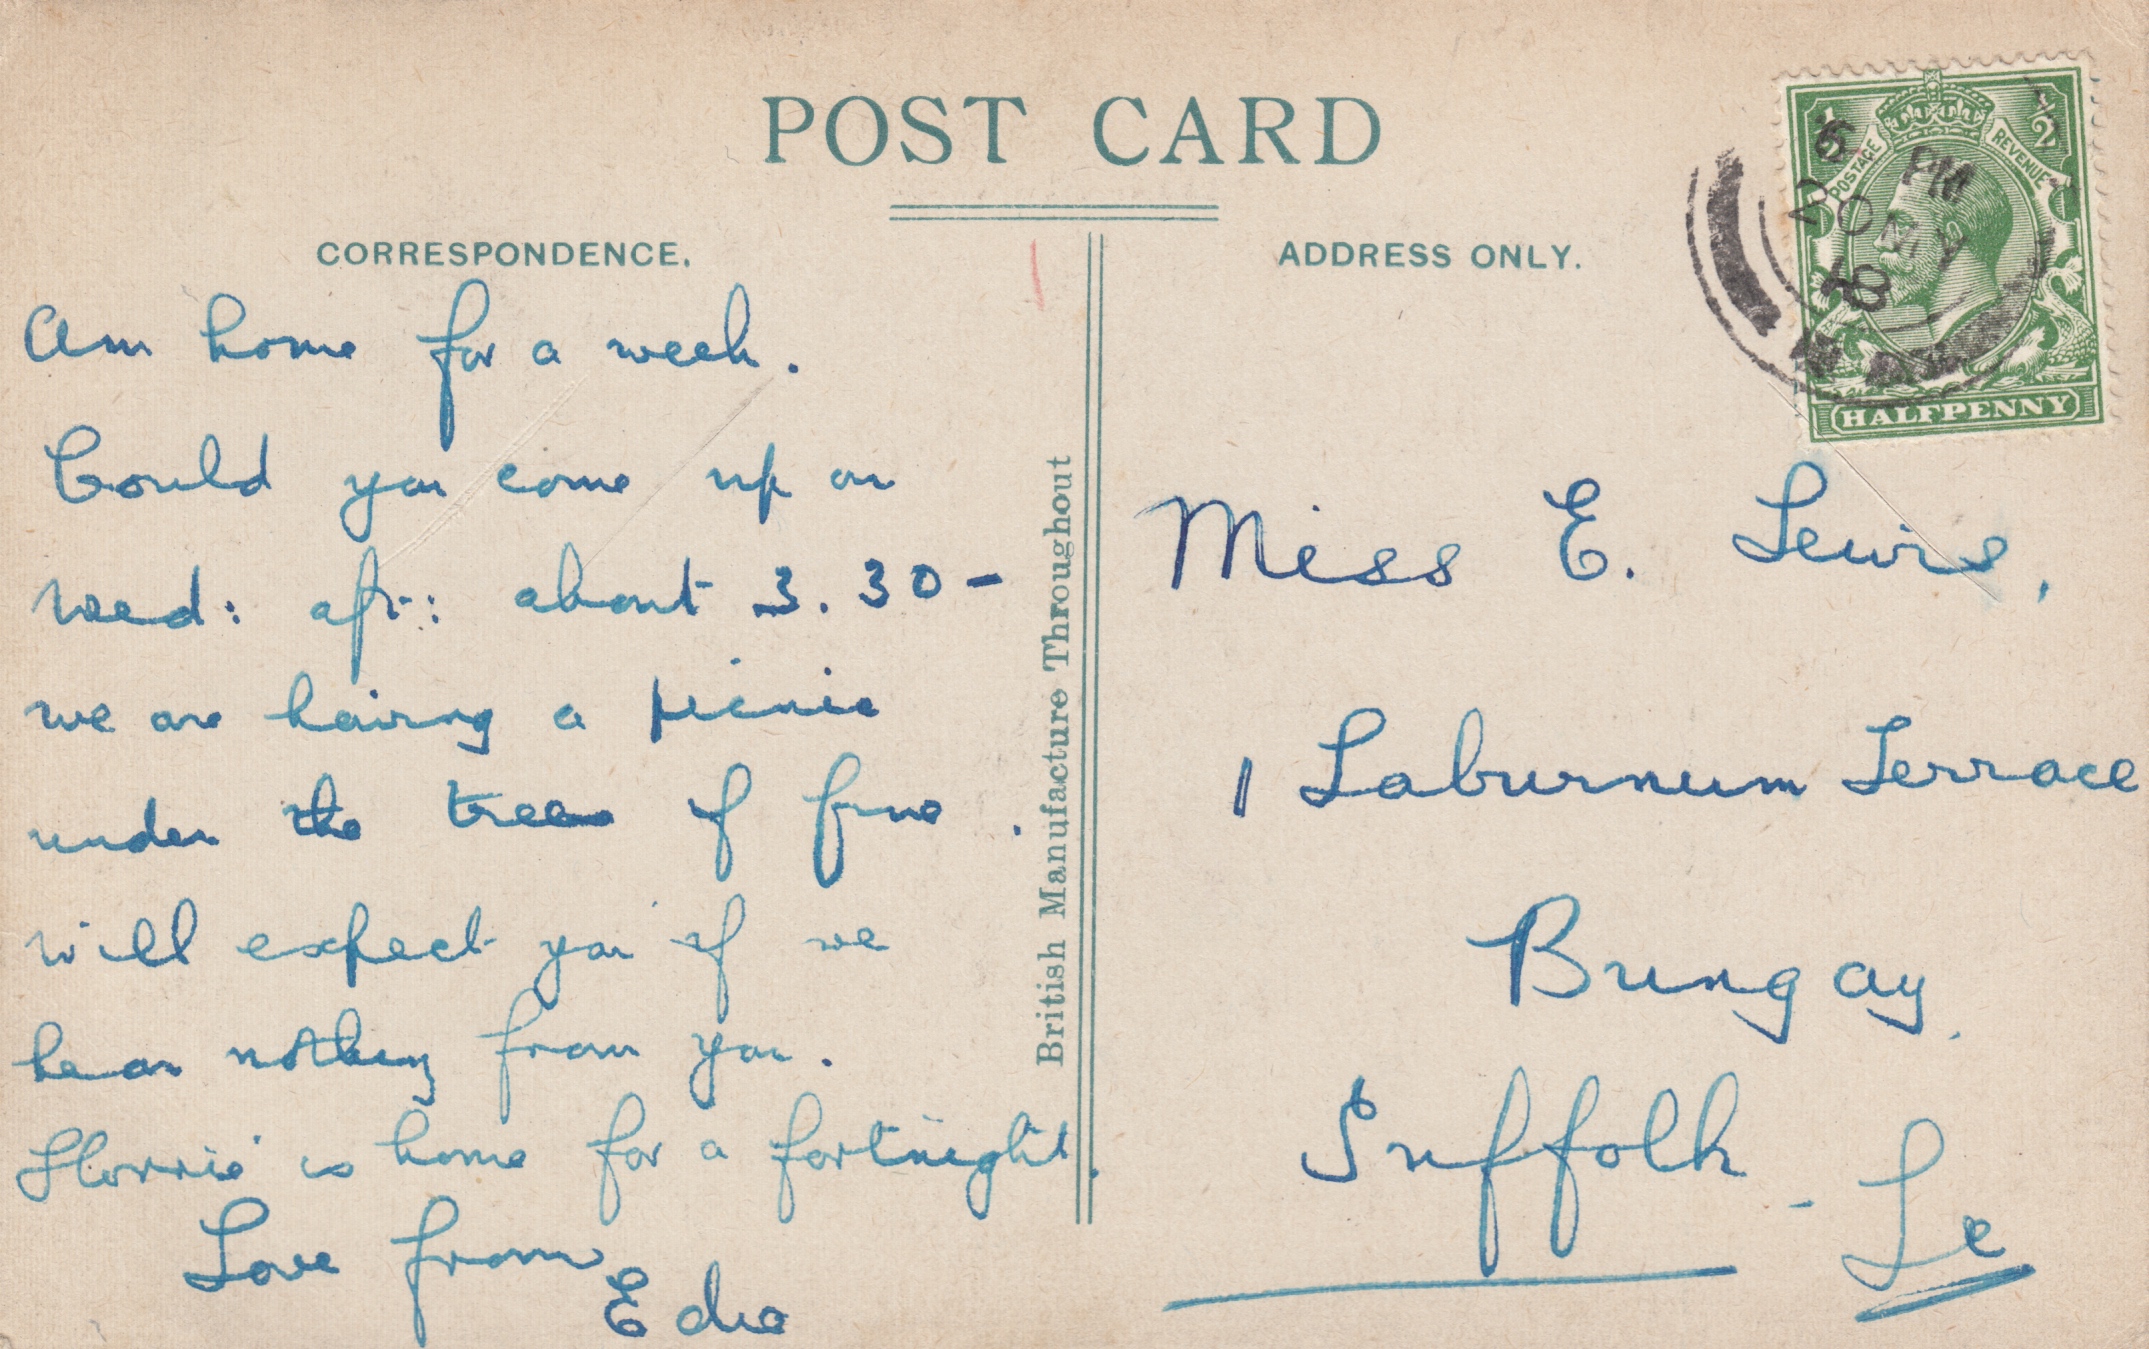 POST CARD
CORRESPONDENCE.
Am home for a week.
Could you come up on
Wed: aft: about 3.30 -
we are having a picnic
under the trees if fine.
Will expect you if we
hear nothing from you.
Florrie is home for a fortnight.
Love from
Edie
British Manufacture Throughout
ADDRESS ONLY.
1/2 POSTAGE REVENUE 1/2
HALFPENNY
6 PM
20 MY
18
Miss E. Lewis,
1 Laburnum Terrace
Bungay.
Suffolk -